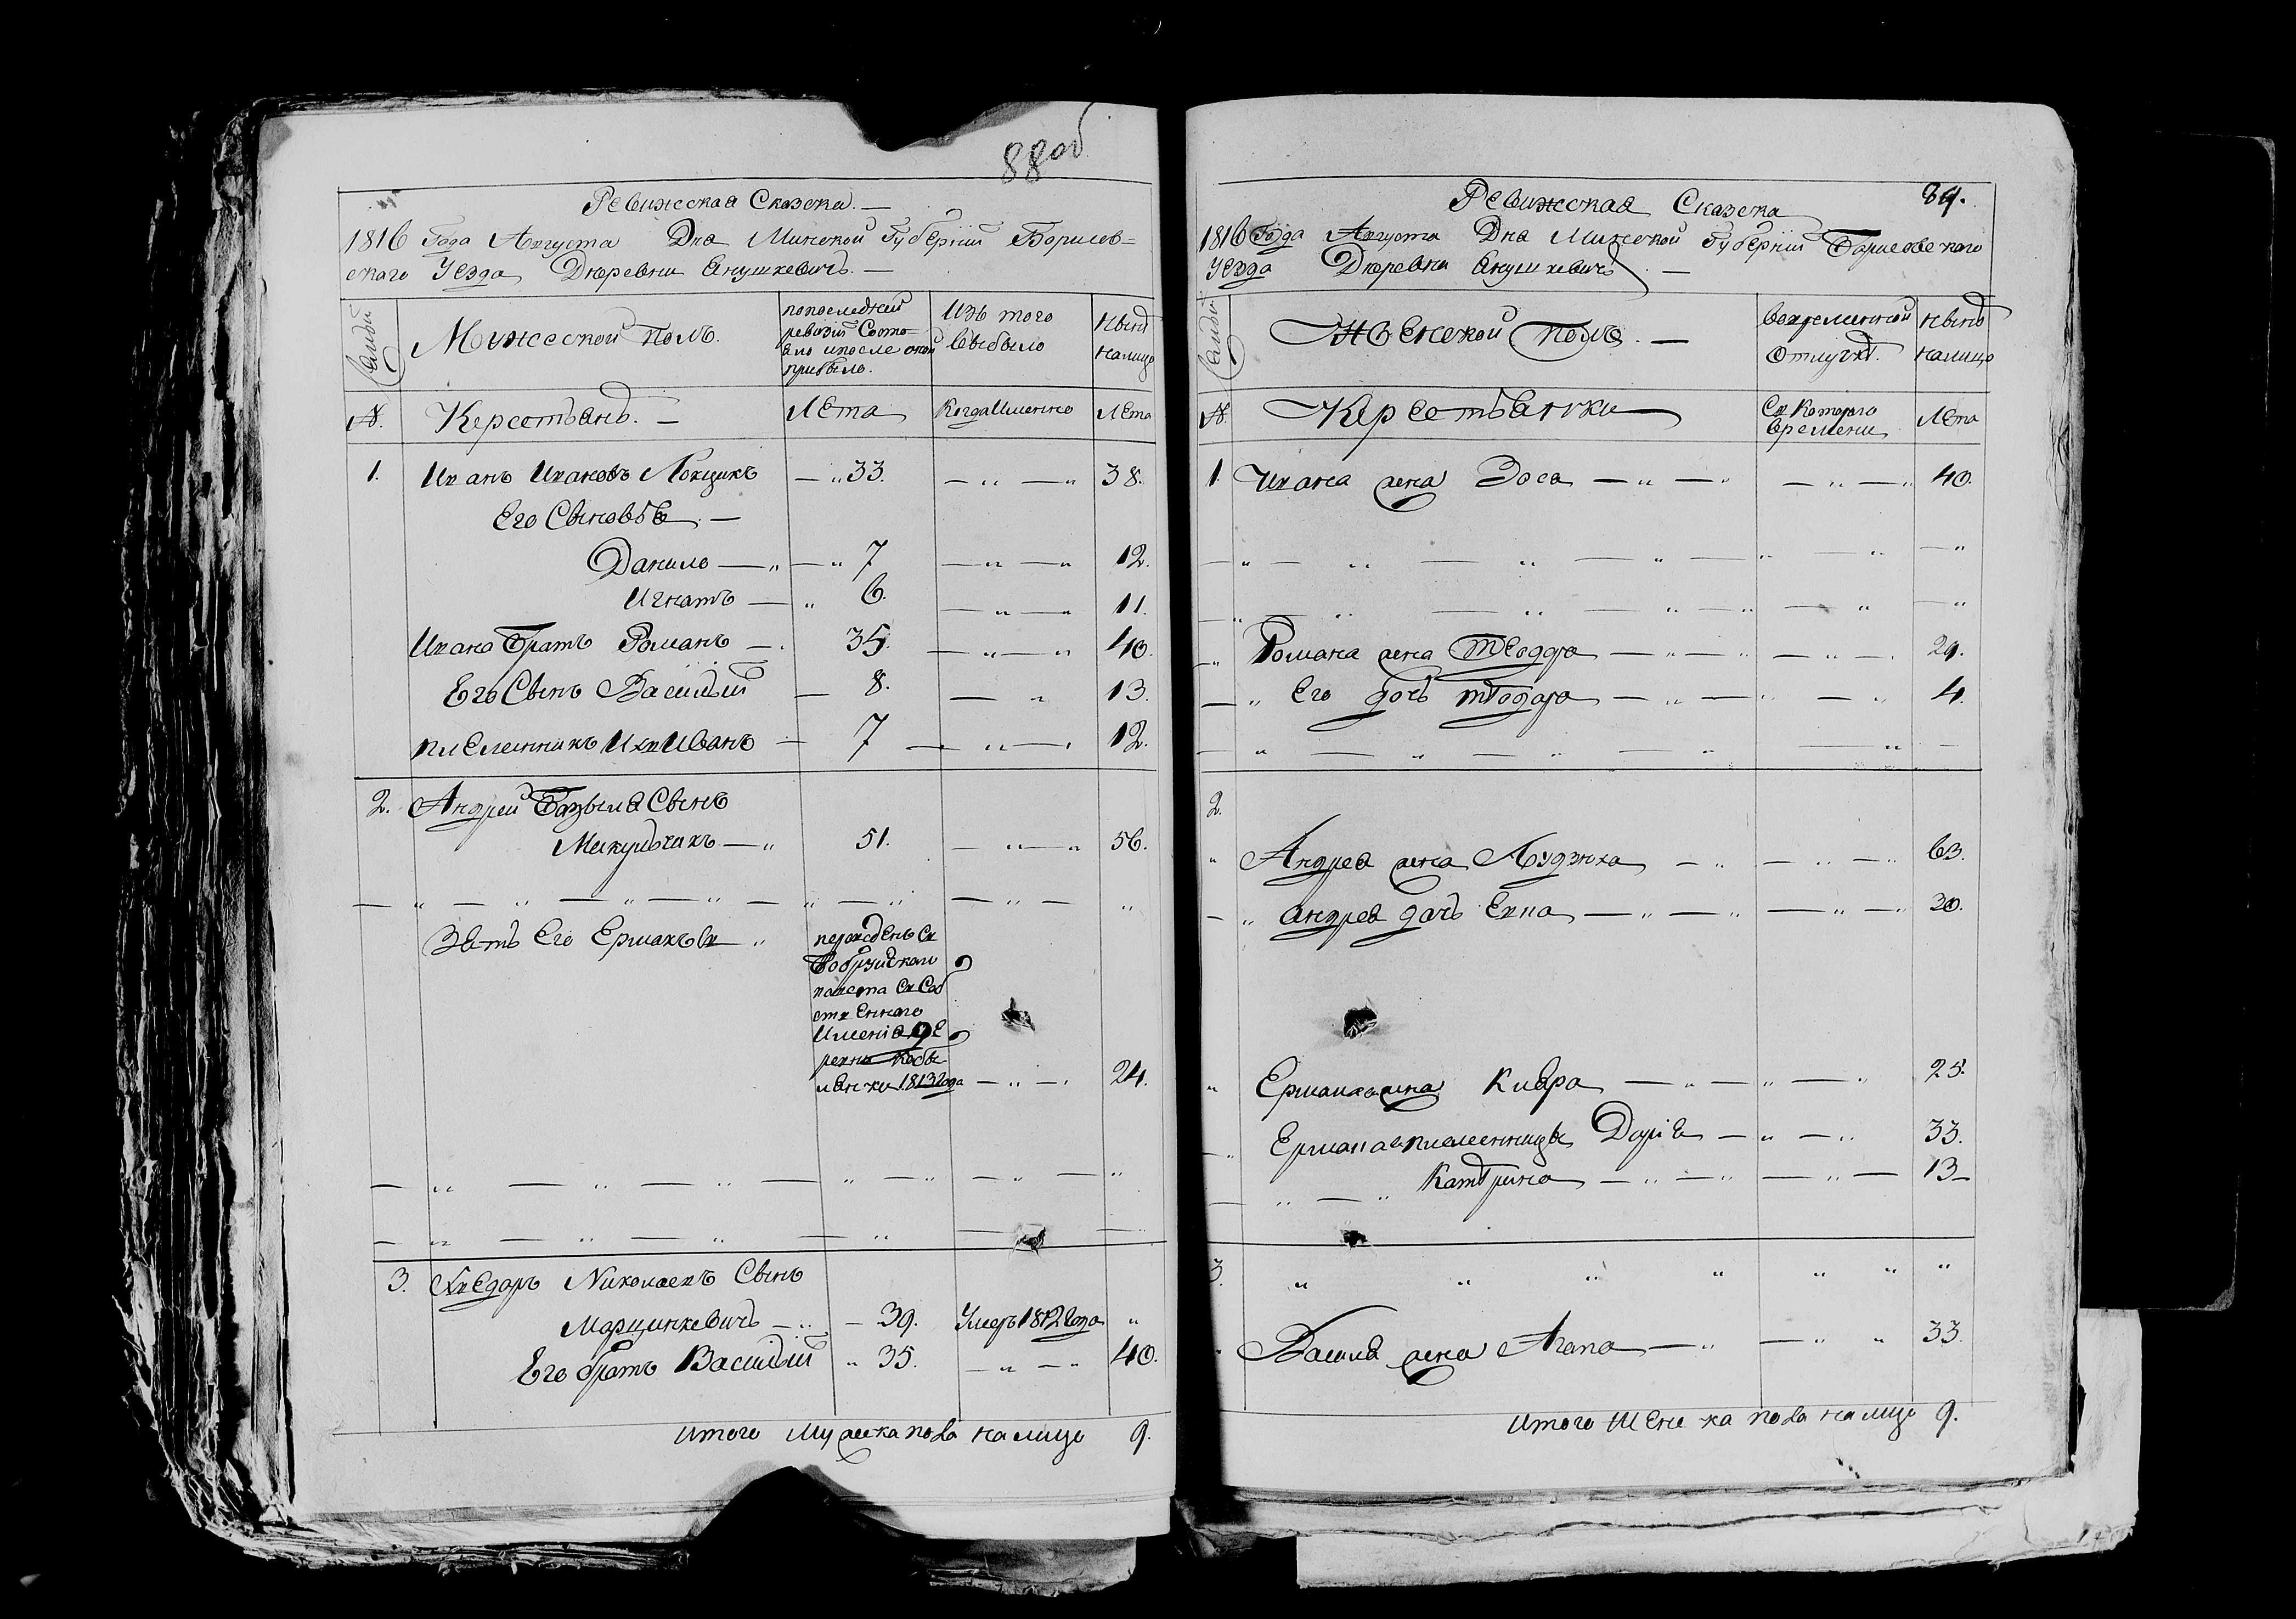 88 об
Ревижская Сказска. —
1816 Года Августа Дня Минской Губернїи Борисов=
ского Уезда Дюревни Янушкевичъ. —
Семьи
Мужеской полъ.
попоследней
ревизїи Состо=
яло ипосле оной
прибыло.
Изъ того
выбыло
Нынѣ
налицо
№.
Керстьянѣ. —
Лѣта
Когда Именно
Лѣта
1. Иванъ Ивановъ — „ 33. — „ — „ 38.
Его Сыновья —
Данило — „ — „ 7 — „ — „ 12.
Игнатъ — „ 6. — „ — „ 11.
Ивана Братъ Романъ — „ 35. — „ — „ 40.
Его Сынъ Василїй — 8. — „ 13.
племенникъ Ихъ Иванъ — 7 — „ — „ 12.
2. Андрей Базыля Сынъ
Микульчикъ — „ 51. — „ — „ 56.
Зять Его Ермакъ „
Бобруйского
повета Съ Соб
ственного
Именїя Де
ревни Кобы
лянки 1813 Года — „ — „ 24.
3. Хведоръ Николаевъ Сынъ
Марцинкевичъ — „ — 39. Умеръ 1812 Года „
Его братъ Василїй „ 35. — „ — „ 40.
итого мужска пола налицо 9.
Ревижская Сказска 89.
1816 Года Августа Дня Минской Губернїи Борисовского
Уезда Дюревни Янушкевичъ —
Семьи
Женской полъ. —
Вовременной
Отлучкѣ.
Нынѣ
налицо
№.
Керсстьянки
Съ Которого
времени
Лѣта
1. Ивана жена Зося — „ — „ — „ — „ 40.
„ Романа жена Теодора — „ — „ — „ — 29.
— „ Его дочь Тодора — „ — „ — „ 4.
2.
„ Андрея жена Людзюка — „ — „ — „ 63.
— „ Андрея дочь Евпа — „ — „ — „ — 30.
„ Ермака жена — „ — „ — „ 25.
— „ Ермака племенницы Дарїя — „ — „ 33.
— „ — „ Катрина — „ — „ — „ — 13 —
3. „ „ „ „ „ „ „
„ Василя жена Агапа — „ — „ „ 33.
итого Женска пола налицо 9.